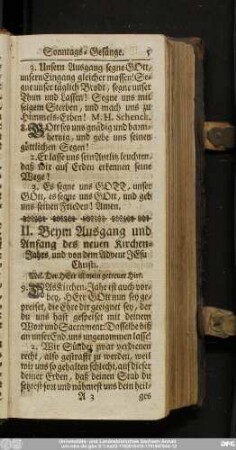 Sonntags-Gesänge. 5
3. Unsern Ausgang segne GOtt,
unsern Eingang gleicher massen! Se-
gne unser täglich Brodt, segne unser
Thun und Lassen! Segne uns mit
seigem Sterben, und mach uns zu
Himmels-Erben! H. M. Schenck.
8. GOtt sey uns gnädig und barm-
hertzig, und gebe uns seinen
göttlichen Segen!
2. Er lasse uns sein Antlitz leuchten,
daß wir auf Erden erkennen seine
Wege!
3. Es segne uns GOTT, unser
GOtt, es segne uns GOtt, und geb
uns seinen Frieden! Amen.
II. Beym Ausgang und
Anfang des neuen Kirchen-
Jahrs, und von dem Advent JEsu
Christi.
Mel. Der HErr ist mein getreuer Hirt.
9. DAs Kirchen-Jahr ist auch vor-
bey, HErr GOtt nun sey ge-
preiset, die Ehre dir geeignet sey, der
du uns hast gespeiset mit deinem
Wort und Sacrament: Dasselbe biß
an unser End uns ungenommen lasse!
2. Wir Sünder zwar verdienen
recht, also gestrafft zu werden, weil
wir uns so gehalten schlecht, auf dieser
deiner Erden, daß deinen Stab die
schlössest und nähmest uns dein heil-
A 3 ges